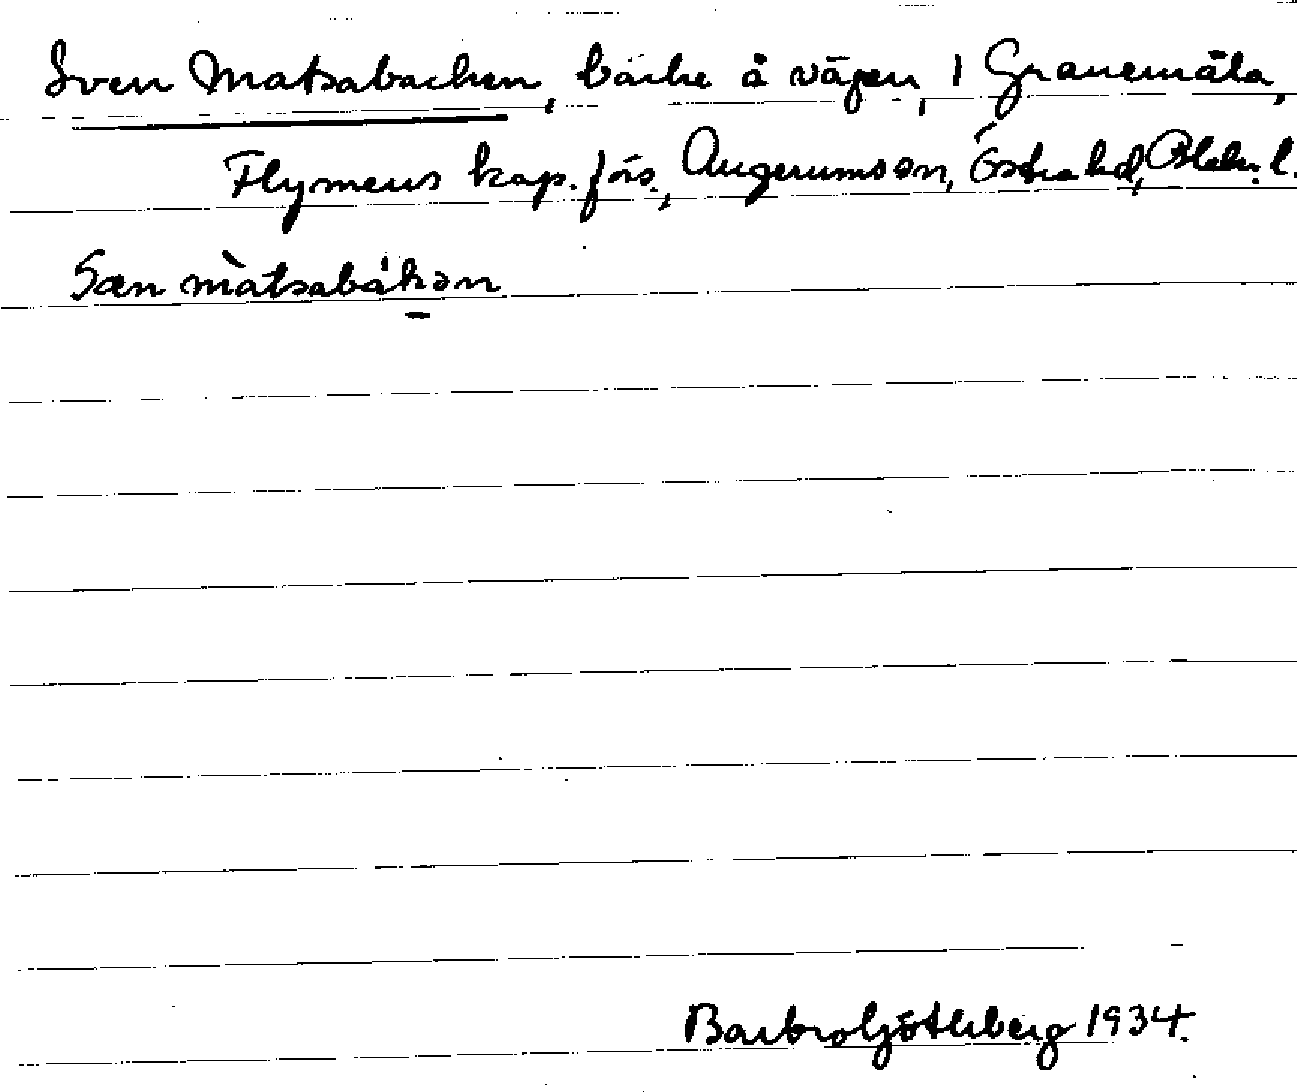 Sven Matsabacken, backe å vägen, i Granemåla,
Flymens kap. förs., Augerums sn, Östra hd, Blek. l.
Sæn màtsabákən
Barbro Götheberg 1934.